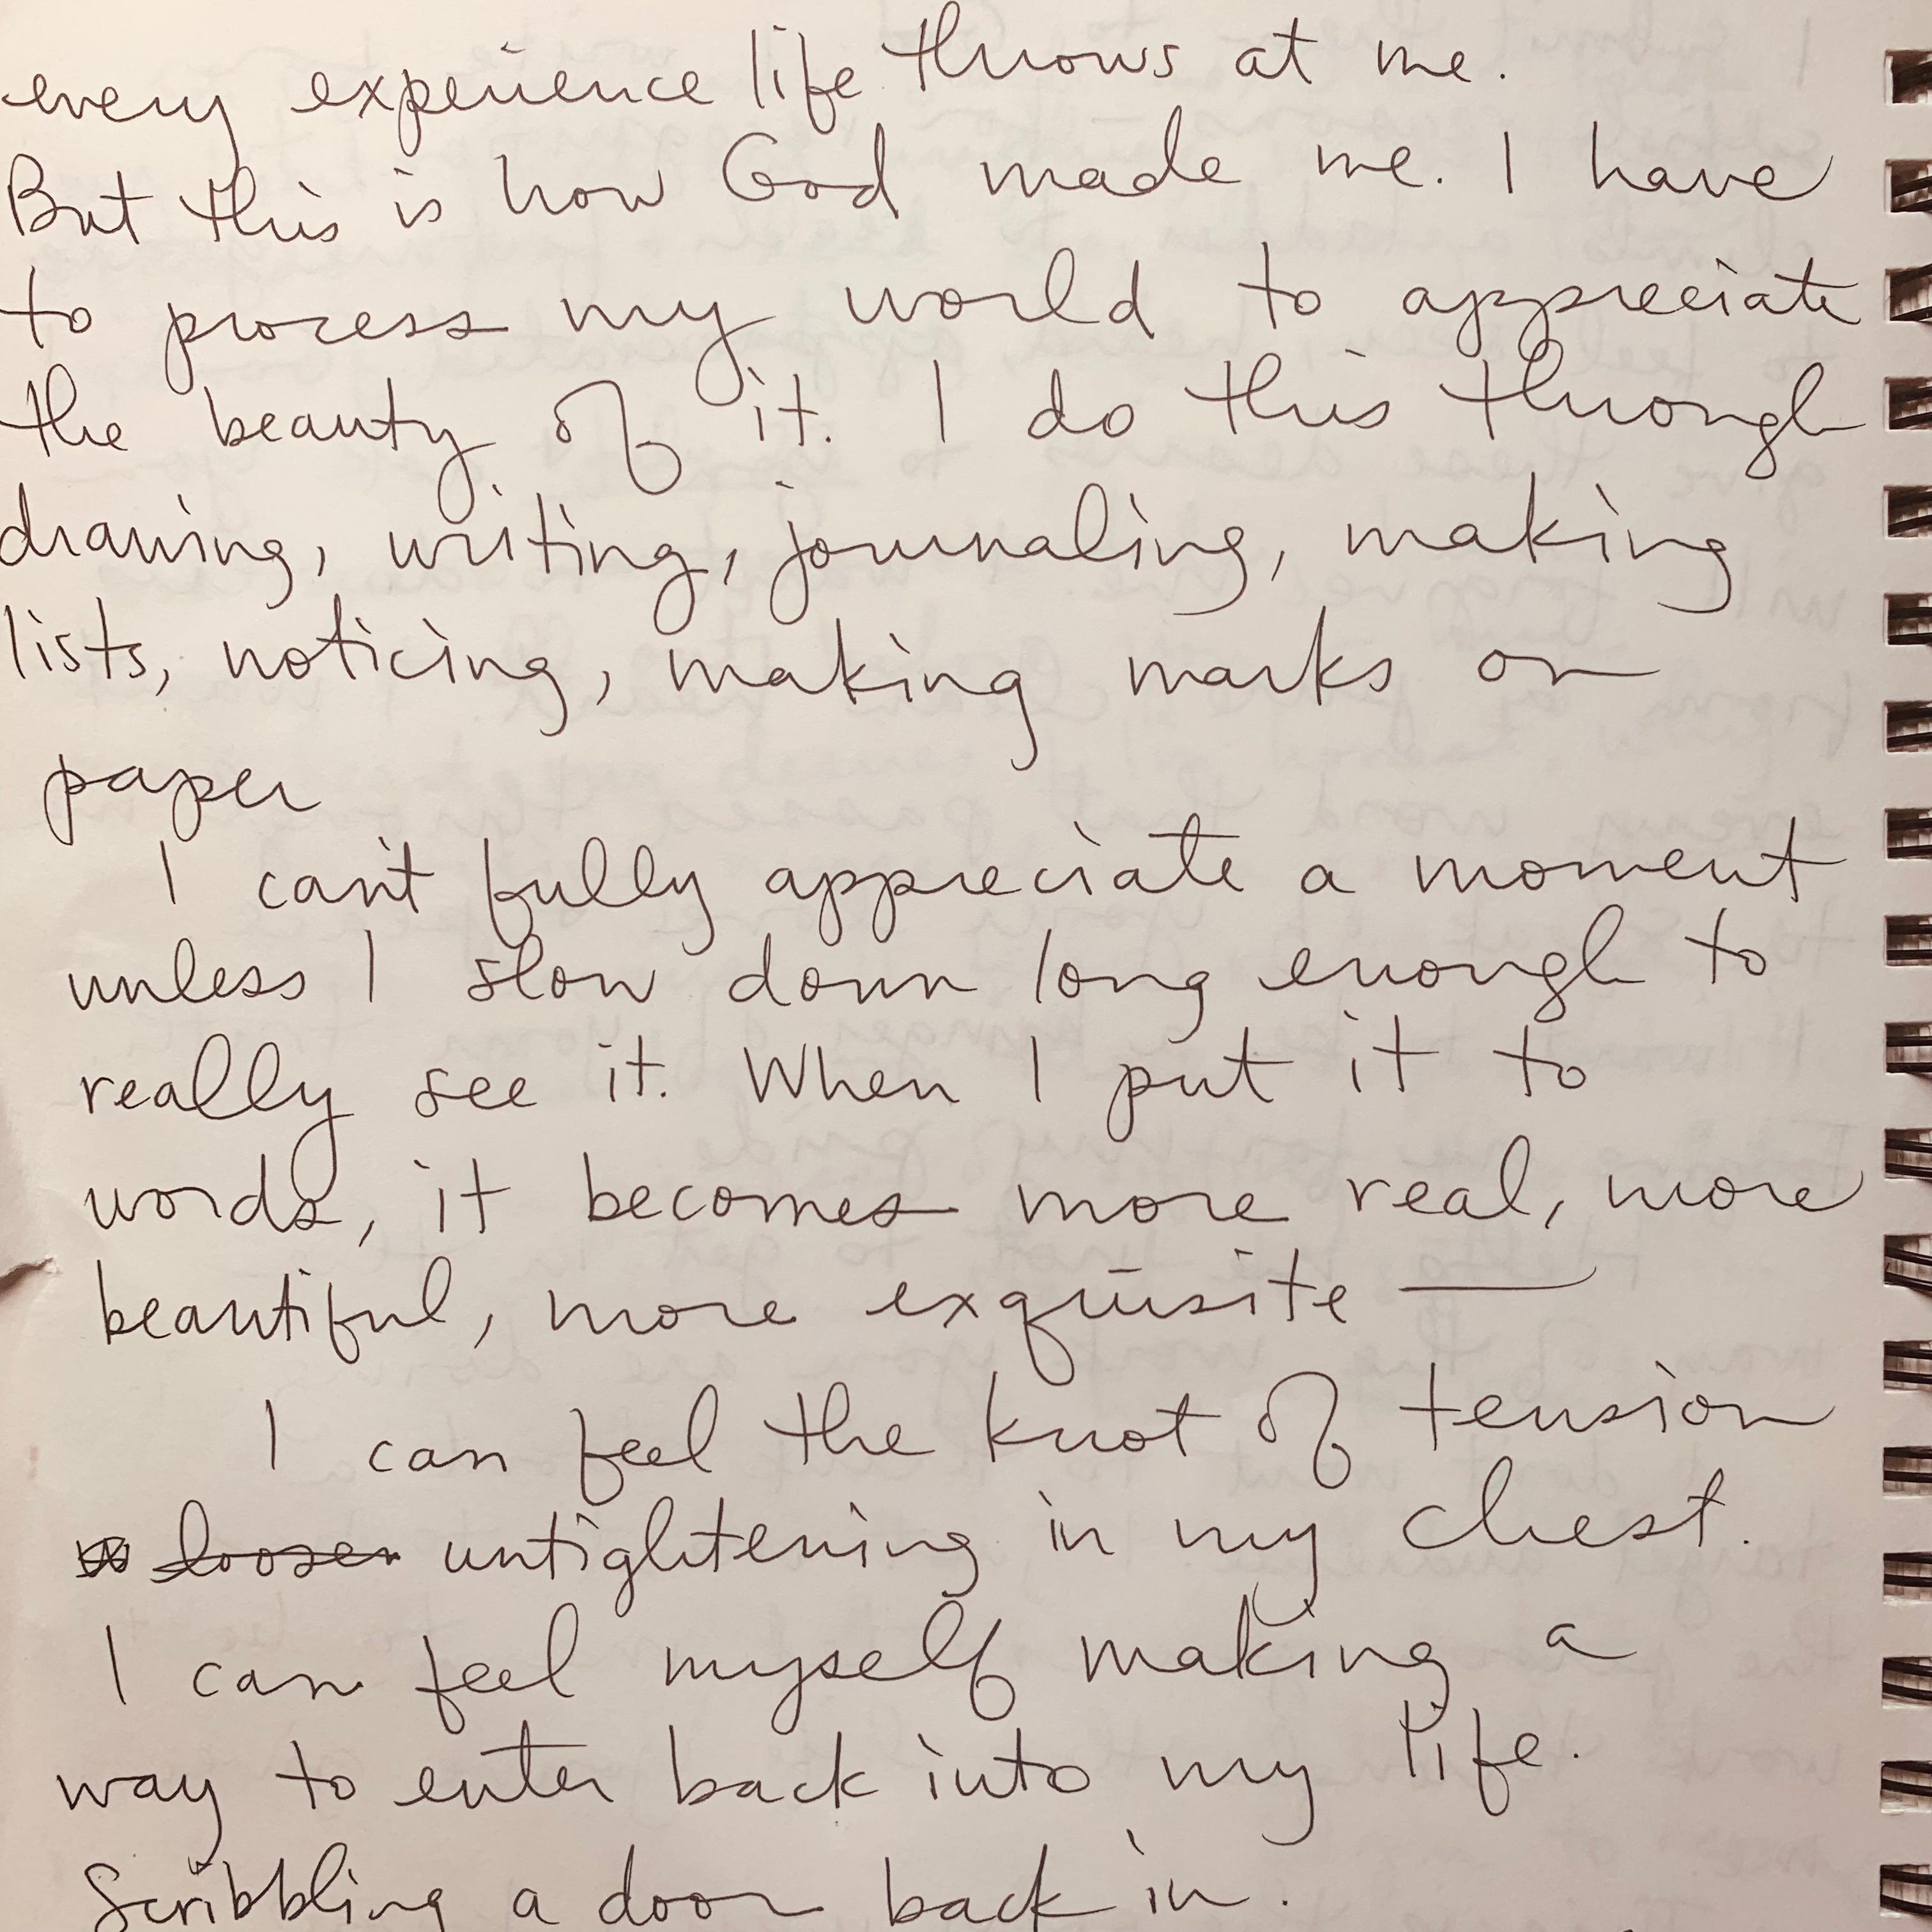 every experience life throws at me.
But this is how God made me. I have
to process my world to appreciate
the beauty of it. I do this through
drawing, writing, journaling, making
lists, noticing, making marks on
paper
I can't fully appreciate a moment
unless I slow down long enough to
really see it. When I put it to
words, it becomes more real, more
beautiful, more exquisite —
I can feel the knot of tension
loosen untightening in my chest.
I can feel myself making a
way to enter back into my life.
Scribbling a door back in.